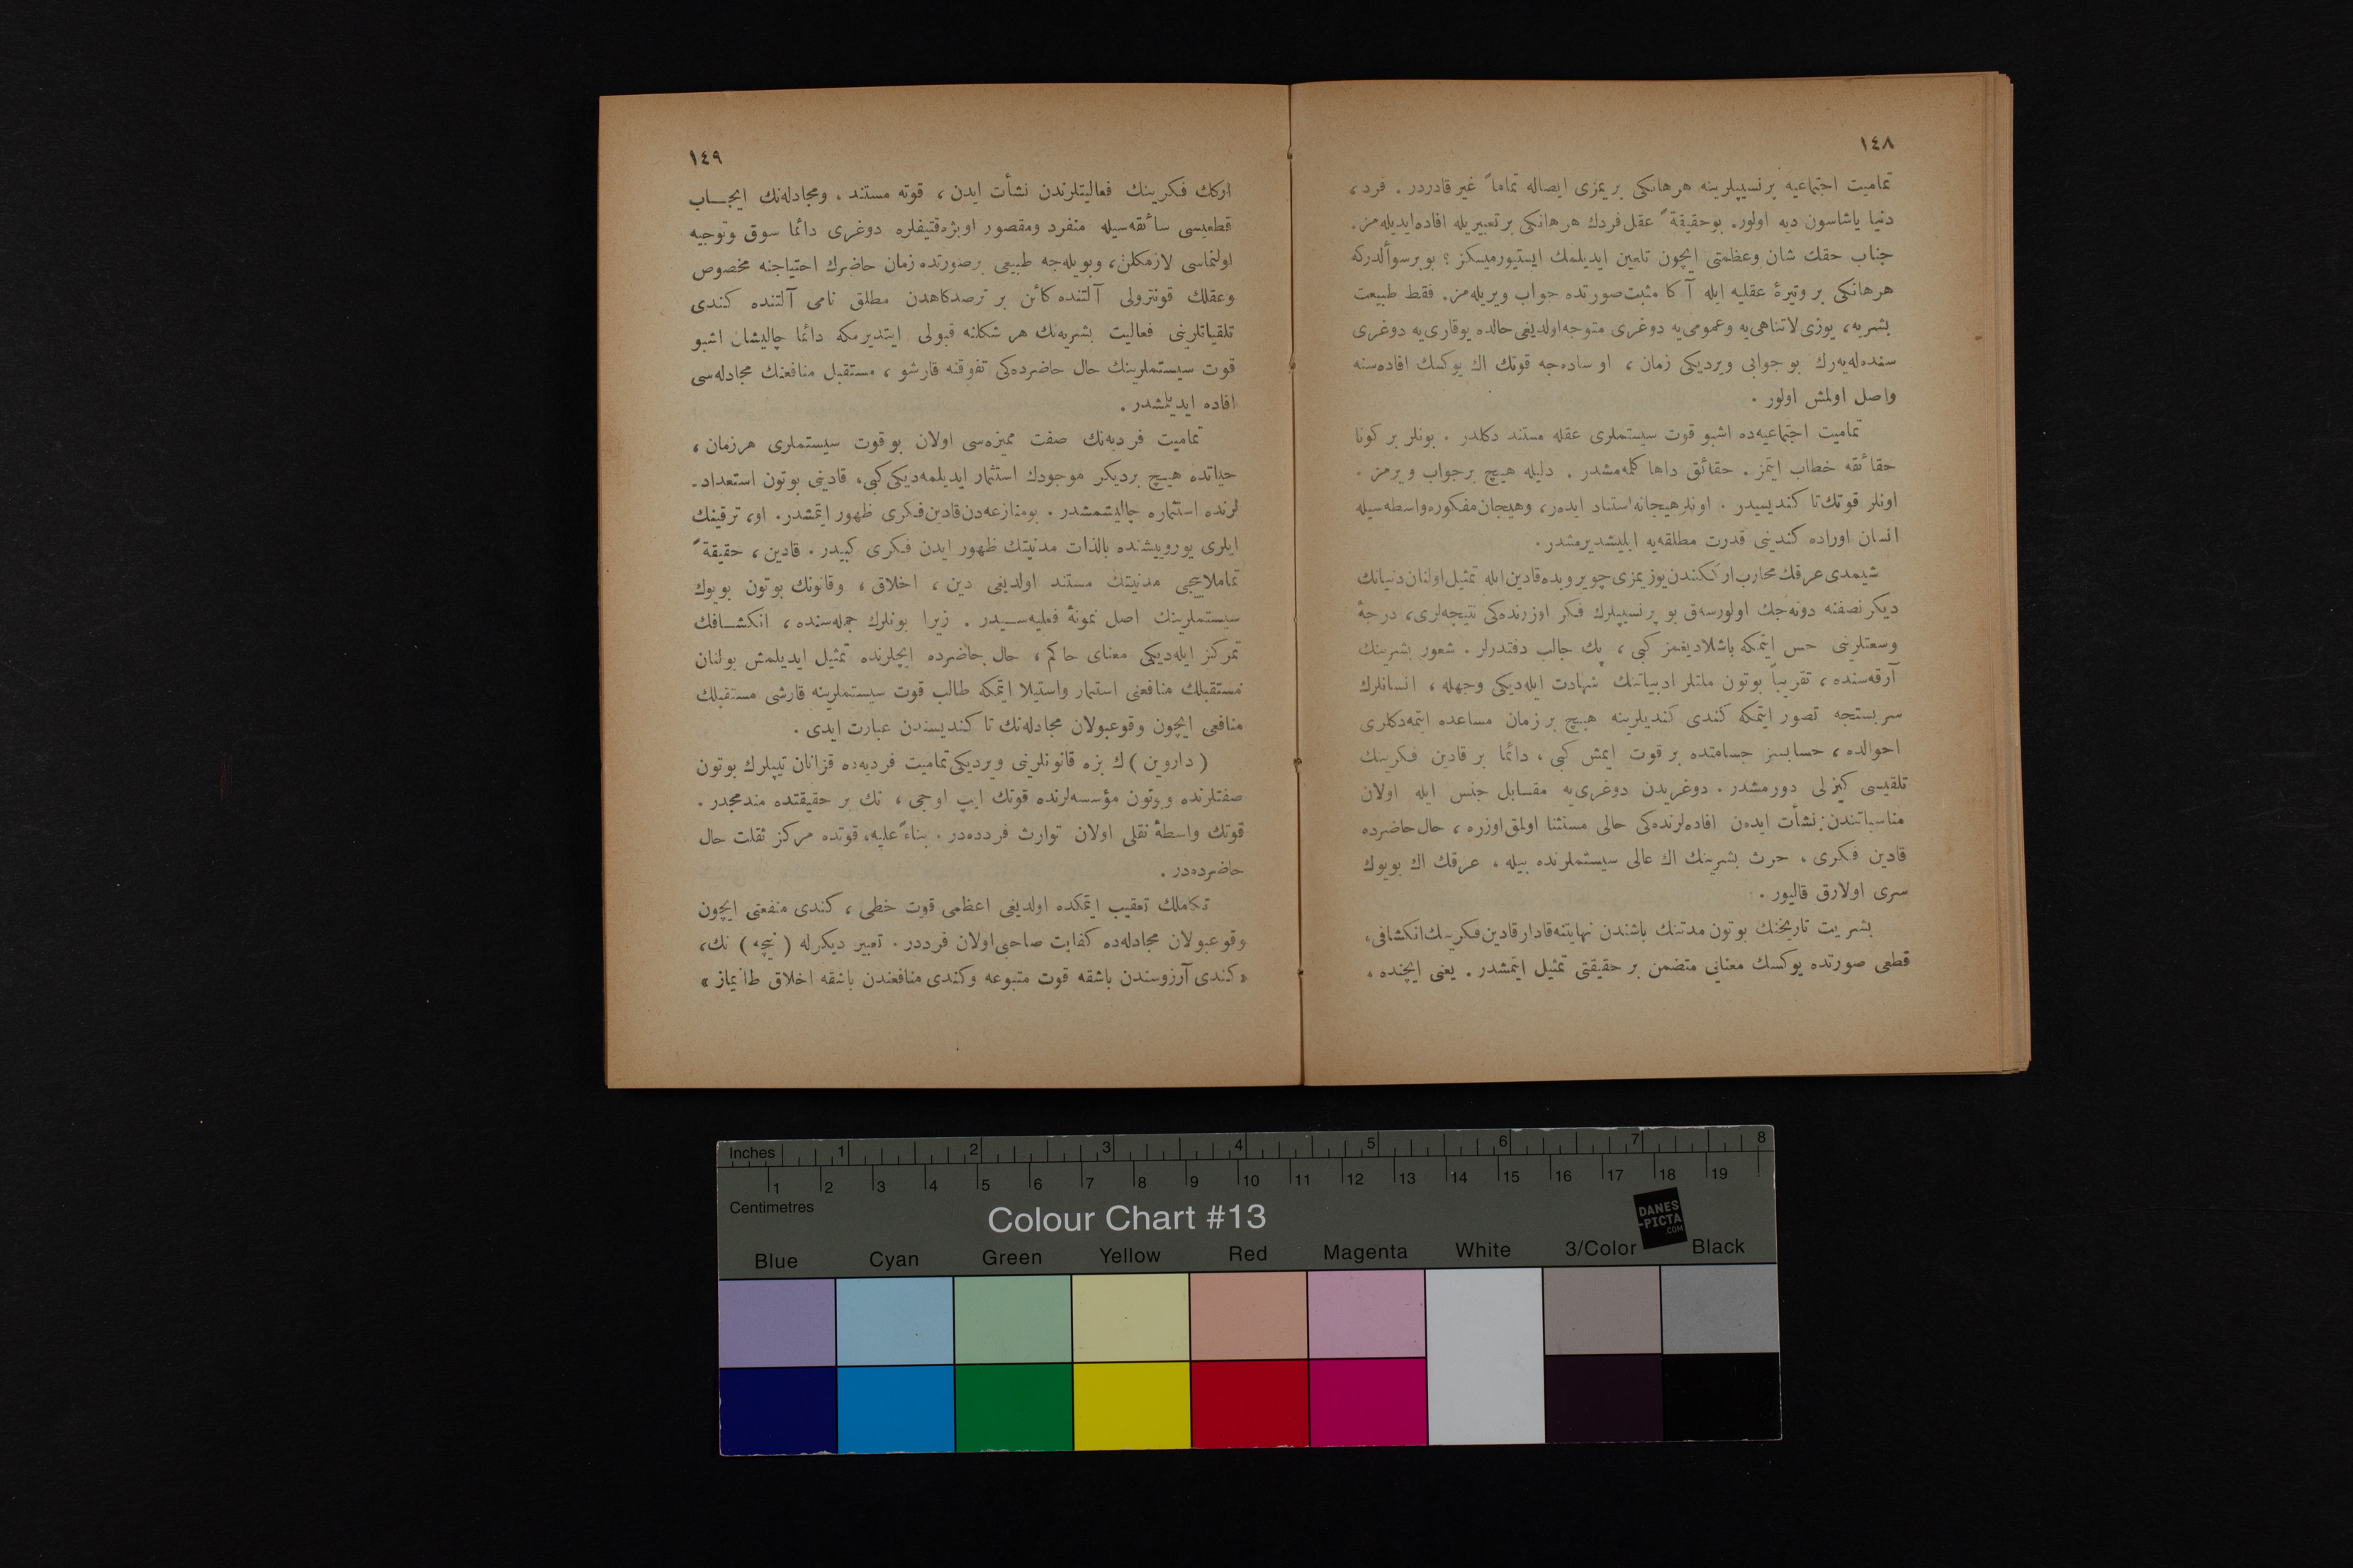 ١٤٨
تمامیت اجتماعیه پرنسیپلرینه هر هانکی بریمزی ایصاله تماماً غیر قادردر . فرد ،
دنیا یاشاسون دیه اولور. بوحقیقةً عقل فردك هر هانكی بر تعبیریله افاده ایدیله مز .
جناب حقك شان وعظمتی ایچون تلعین ایدیلمك ایستیورمیسكز ؟ بو برسوألدركه
هر هانكی بر وتیرهٔ عقلیه ایله آ كا مثبت صورتده جواب ویریله مز . فقط طبیعت
بشریه ، یوزی لاتناهی یه وعمومی یه دوغری متوجه اولدیغی حالده یوقاری یه دوغری
سنده له یه رك بو جوابی ویردیكی زمان ، او ساده جه قوتك اك یوكسك افاده سنه
واصل اولمش اولور .
تمامیت اجتماعیه ده اشبو قوت سیستملری عقله مستند دكلدر . بونلر بر كونا
حقائقه خطاب ایتمز . حقائق داها كلمه مشدر . دلیله هیچ برجواب ویرمز .
اونلر قوتك تا كندیسیدر . اونلر هیجانه استناد ایدەر ، وهیجان مفكوره واسطه سیله
انسان اوراده كندینی قدرت مطلقه یه ایلیشدیرمشدر .
شیمدی عرقك محارب ارككندن یوزیمزی چویروبده قادین ایله تمثیل اولنان دنیانك
دیكر نصفنه دونه جك اولورسەق بو پرنسیپلرك فكر اوزرنده كی نتیجه لری ، درجهٔ
وسعتلرینی حس ایتمكه باشلادیغمز كبی ، پك جالب دقتدرلر . شعور بشرینك
آرقه سنده ، تقریباً بوتون ملتلر ادبیاتنك شهادت ایله دیكی وجهله ، انسانلرك
سربستجه تصور ایتمكه كندی كندیلرینه هیچ بر زمان مساعده ایتمه دكلری
احوالده ، حسابسز جسامتده بر قوت ایمش كبی ، دائما بر قادین فكرینك
تلقیسی كیزلی دورمشدر . دوغریدن دوغری یه مقابل جنس ایله اولان
مناسباتندن نشأت ایدەن افاده لرنده كی حالی مستثنا اولمق اوزره ، حال حاضرده
قادین فكری ، حرث بشرینك اك عالی سیستملرنده بیله ، عرقك اك بویوك
سری اولارق قالیور .
بشریت تاریخنك بوتون مدتنك باشندن نهایتنه قادار قادین فكرینك انكشافی ،
قطعی صورتده یوكسك معنایی متضمن بر حقیقتی تمثیل ایتمشدر . یعنی ایچنده ،
١٤٩
اركك فكرینك فعالیتلرندن نشأت ایدن ، قوته مستند ، ومجادله نك ایجاب
قطعیسی سائقه سیله منفرد ومقصور اوبژه قتیفلره دوغری دائما سوق وتوجیه
اولنماسی لازمكلن ، وبویله جه طبیعی بر صورتده زمان حاضرك احتیاجنه مخصوص
وعقلك قونترولی آلتنده كائن بر ترصدكاهدن مطلق نامی آلتنده كندی
تلقیاتلرینی فعالیت بشریه نك هر شكلنه قبولی ایتدیرمكه دائما چالیشان اشبو
قوت سیستملرینك حال حاضرده كی تفوقنه قارشو ، مستقبل منافعنك مجادله سی
افاده ایدیلمشدر .
تمامیت فردیه نك صفت ممیزه سی اولان بو قوت سیستملری هرزمان ،
حیاتده هیچ بردیكر موجودك استثمار ایدیلمه دیكی كبی ، قادینی بوتون استعداد-
لرنده استثماره چالیشمشدر . بومنازعه دن قادین فكری ظهور ایتمشدر . او ، ترقینك
ایلری یورویشنده بالذات مدنیتك ظهور ایدن فكری كبیدر . قادین ، حقیقةً
مدنیتك مستند اولدیغی دین ، اخلاق ، وقانونك بوتون بویوك
سیستملرینك اصل نمونهٔ فعلیه سیدر . زیرا بونلرك جمله سنده ، انكشافك
تمركز ایله دیكی معنای حاكم ، حال حاضرده ایچلرنده تمثیل ایدیلمش بولنان
مستقبلك منافعنی استثمار واستیلا ایتمكه طالب قوت سیستملرینه قارشی مستقبلك
منافعی ایچون وقوعبولان مجادله نك تا كندیسندن عبارت ایدی .
( داروین ) ك بزه قانونلرینی ویردیكی تمامیت فردیه ده قزانان تیپلرك بوتون
صفتلرنده وبوتون مؤسسه لرنده قوتك ایپ اوجی ، تك بر حقیقتده مندمجدر .
قوتك واسطهٔ نقلی اولان توارث فردده در . بناءً علیه ، قوتده مركز ثقلت حال
حاضرده در .
تكاملك تعقیب ایتمكده اولدیغی اعظمی قوت خطی ، كندی منفعتی ایچون
وقوعبولان مجادله ده كفایت صاحبی اولان فرددر . تعبیر دیكرله ( نیچه ) نك ،
« كندی آرزوسندن باشقه قوت متبوعه وكندی منافعندن باشقه اخلاق طانیماز »
Inches 1 2 3 4 5 6 7 8
1 2 3 4 5 6 7 8 9 10 11 12 13 14 15 16 17 18 19
Centimetres
Colour Chart #13
DANES
-PICTA
.COM
Blue Cyan Green Yellow Red Magenta White 3/Color Black